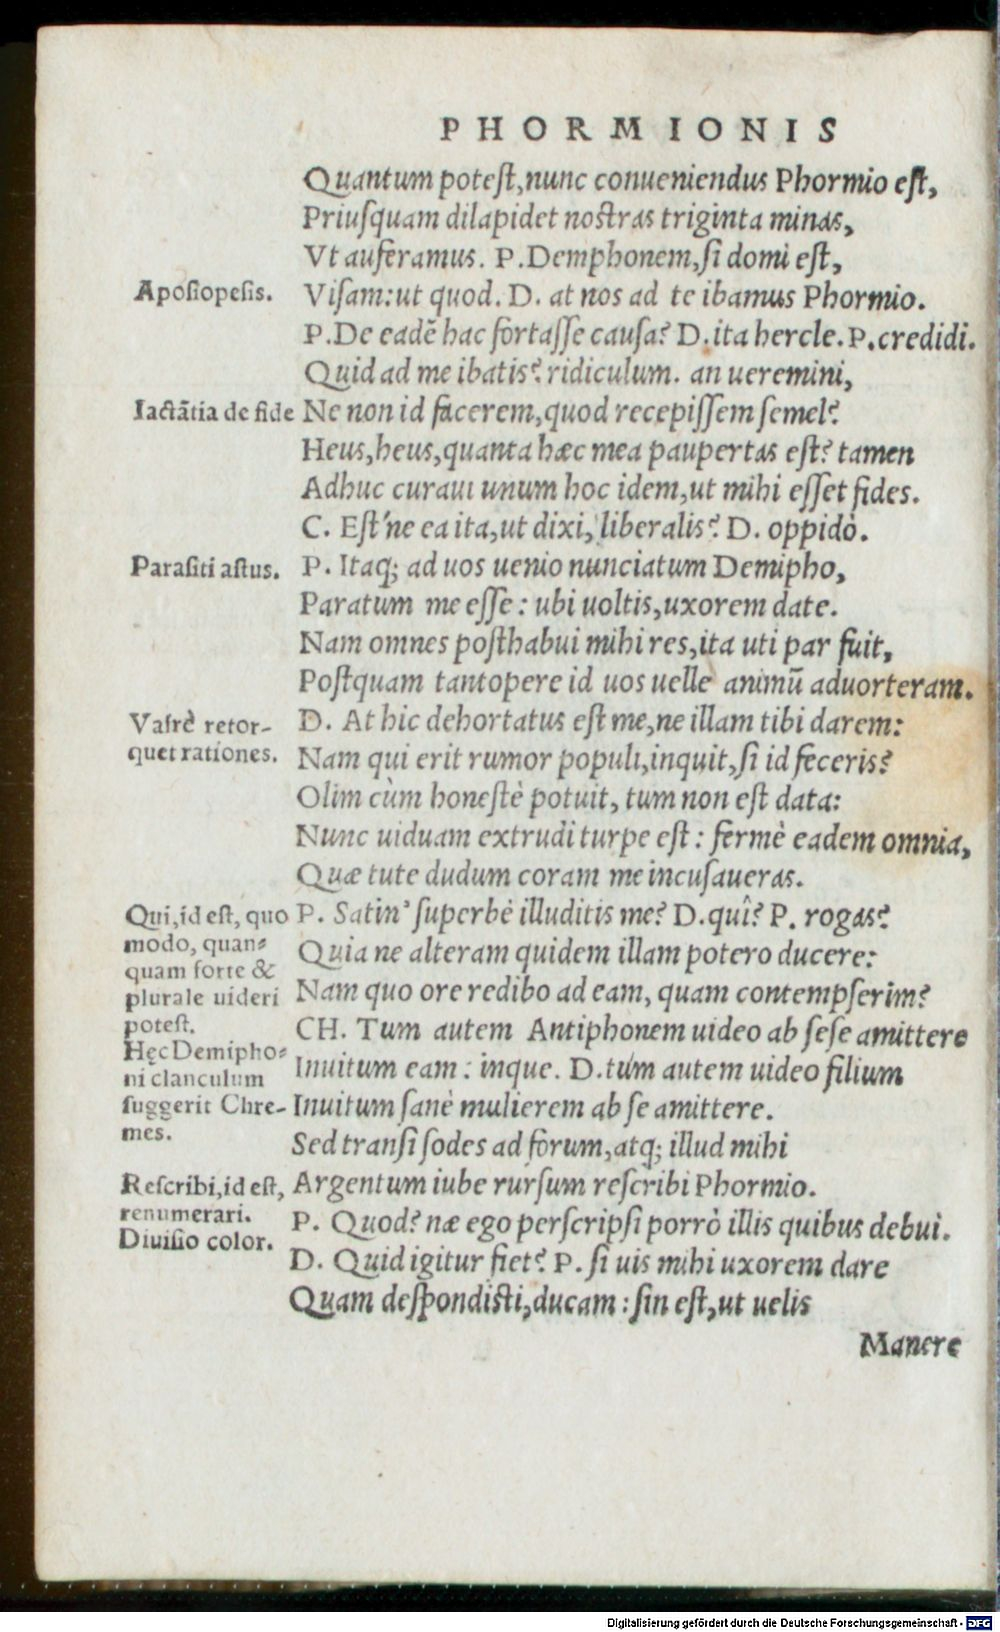 PHORMIONIS
Quantum potest, nunc conueniendus Phormio est,
Priusquam dilapidet nostras triginta minas,
Vt auferamus. P. Demphonem, si domi est,
Aposiopesis.
Visam: ut quod. D. at nos ad te ibamus Phormio.
P. De eadē hac fortasse causa? D. ita hercle. P. credidi.
Quid ad me ibatis? ridiculum. an ueremini,
Iactātia de fide
Ne non id facerem, quod recepissem semel?
Heus, heus, quanta hæc mea paupertas est? tamen
Adhuc curaui unum hoc idem, ut mihi esset fides.
C. Est'ne ea ita, ut dixi, liberalis? D. oppidò.
Parasiti astus.
P. Itaq; ad uos uenio nunciatum Demipho,
Paratum me esse: ubi uoltis, uxorem date.
Nam omnes posthabui mihi res, ita uti par fuit,
Postquam tantopere id uos uelle animū aduorteram.
Vafrè retor-
quet rationes.
D. At hic dehortatus est me, ne illam tibi darem:
Nam qui erit rumor populi, inquit, si id feceris?
Olim cùm honestè potuit, tum non est data:
Nunc uiduam extrudi turpe est: fermè eadem omnia,
Quæ tute dudum coram me incusaueras.
Qui, id est, quo
modo, quan-
quam forte &
plurale uideri
potest.
P. Satin' superbè illuditis me? D. quî? P. rogas?
Quia ne alteram quidem illam potero ducere:
Nam quo ore redibo ad eam, quam contempserim?
Hęc Demipho-
ni clanculum
suggerit Chre-
mes.
CH. Tum autem Antiphonem uideo ab sese amittere
Inuitum eam: inque. D. túm autem uideo filium
Inuitum sanè mulierem ab se amittere.
Sed transi sodes ad forum, atq; illud mihi
Rescribi, id est,
renumerari.
Diuisio color.
Argentum iube rursum rescribi Phormio.
P. Quod? næ ego perscripsi porrò illis quibus debui.
D. Quid igitur fiet? P. si uis mihi uxorem dare
Quam despondisti, ducam: sin est, ut uelis
Manere
Digitalisierung gefördert durch die Deutsche Forschungsgemeinschaft - DFG